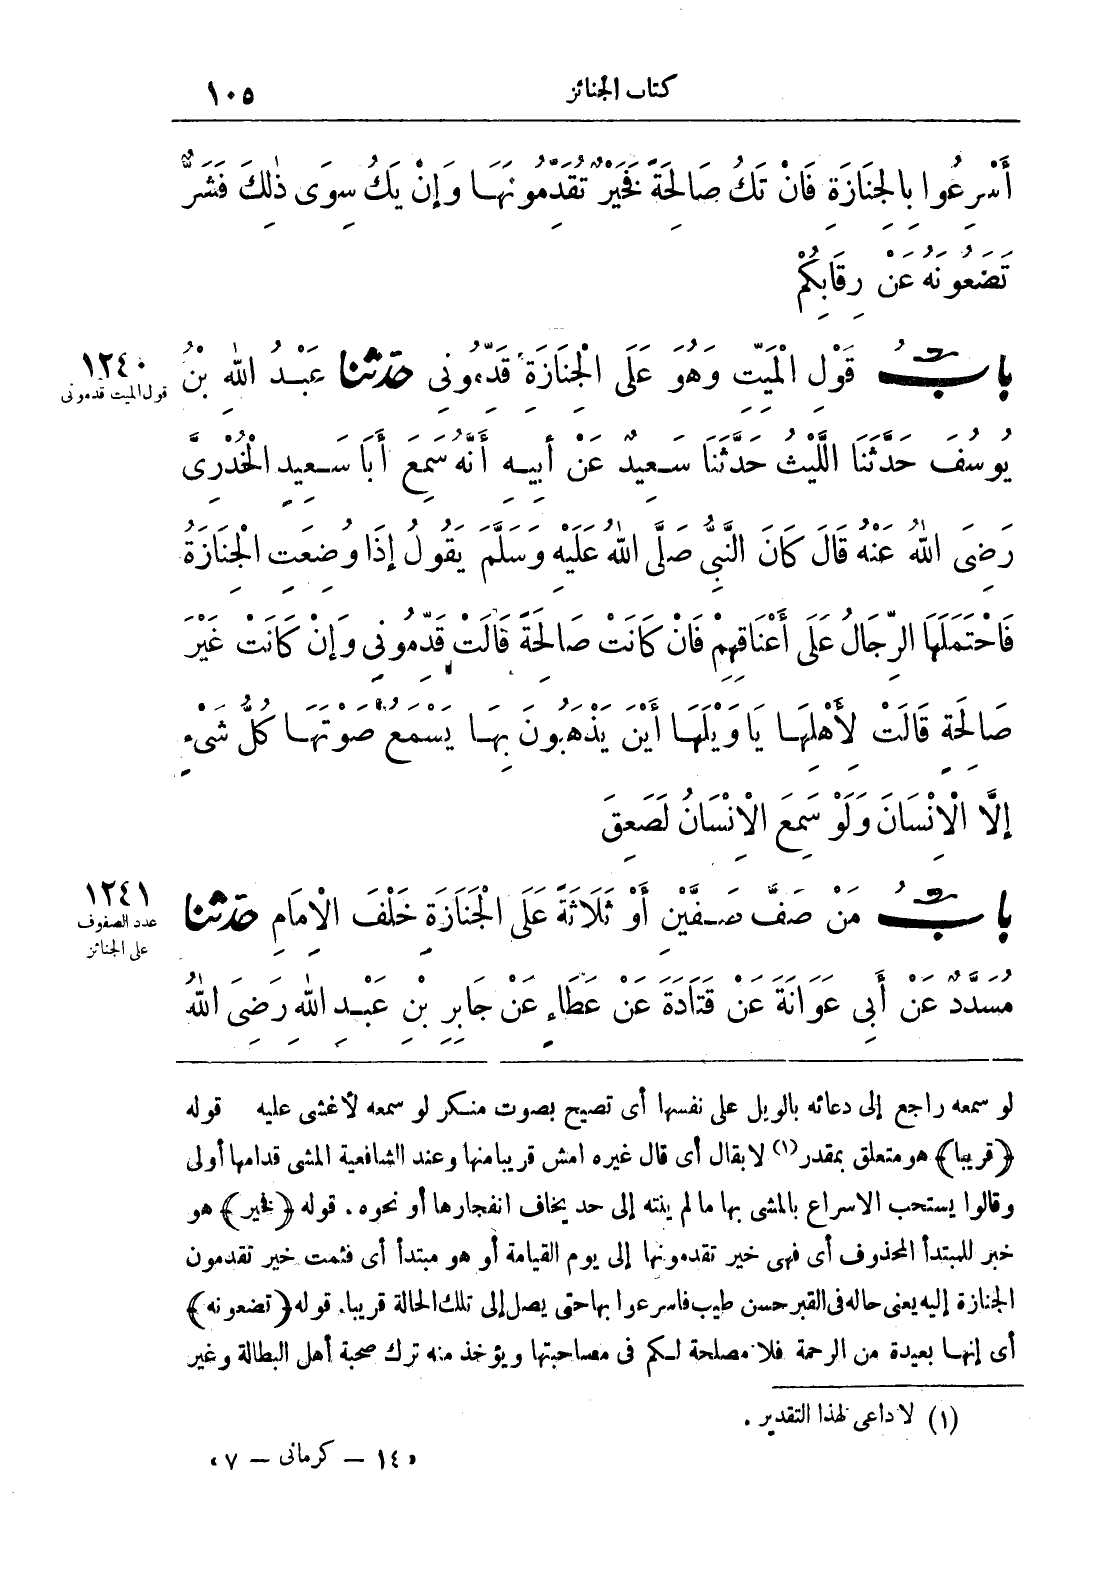 كتاب الجنائز ١٠٥
أَسْرِعُوا بِالْجِنَازَةِ فَانْ تَكُ صَالِحَةً فَخَيْرٌ تُقَدِّمُونَهَا وَإِنْ يَكُ سِوَى ذٰلِكَ فَشَرٌّ
تَضَعُونَهُ عَنْ رِقَابِكُمْ
بابُ قَوْلِ الْمَيِّتِ وَهُوَ عَلَى الْجِنَازَةِ قَدِّمُونِى حدثنا عَبْدُ اللهِ بْنُ
١٢٤٠
قول الميت قدمونى
يُوسُفَ حَدَّثَنَا اللَّيْثُ حَدَّثَنَا سَعِيدٌ عَنْ أَبِيهِ أَنَّهُ سَمِعَ أَبَا سَعِيدٍ الْخُدْرِىَّ
رَضِىَ اللهُ عَنْهُ قَالَ كَانَ النَّبِىُّ صَلَّى اللهُ عَلَيْهِ وَسَلَّمَ يَقُولُ إِذَا وُضِعَتِ الْجِنَازَةُ
فَاحْتَمَلَهَا الرِّجَالُ عَلَى أَعْنَاقِهِمْ فَانْ كَانَتْ صَالِحَةً قَالَتْ قَدِّمُونِى وَإِنْ كَانَتْ غَيْرَ
صَالِحَةٍ قَالَتْ لِأَهْلِهَا يَا وَيْلَهَا أَيْنَ يَذْهَبُونَ بِهَا يَسْمَعُ صَوْتَهَا كُلُّ شَىْءٍ
إِلَّا الْإِنْسَانَ وَلَوْ سَمِعَ الْإِنْسَانُ لَصَعِقَ
بابُ مَنْ صَفَّ صَفَّيْنِ أَوْ ثَلَاثَةً عَلَى الْجَنَازَةِ خَلْفَ الْإِمَامِ حدثنا
١٢٤١
عدد الصفوف
على الجنائز
مُسَدَّدٌ عَنْ أَبِى عَوَانَةَ عَنْ قَتَادَةَ عَنْ عَطَاءٍ عَنْ جَابِرِ بْنِ عَبْدِ اللهِ رَضِىَ اللهُ
لو سمعه راجع إلى دعائه بالويل على نفسها أى تصيح بصوت منكر لو سمعه لأغشى عليه قوله
﴿قريبا﴾ هو متعلق بمقدر (١) لا بقال أى قال غيره امش قريبا منها وعند الشافعية المشى قدامها أولى
وقالوا يستحب الاسراع بالمشى بها ما لم ينته إلى حد يخاف انفجارها أو نحوه . قوله ﴿فخير﴾ هو
خبر للمبتدأ المحذوف أى فهى خير تقدمونها إلى يوم القيامة أو هو مبتدأ أى فثمت خير تقدمون
الجنازة إليه يعنى حاله فى القبر حسن طيب فاسرعوا بها حتى يصل إلى تلك الحالة قريبا. قوله ﴿تضعونه﴾
أى إنها بعيدة من الرحمة فلا مصلحة لكم فى مصاحبتها ويؤخذ منه ترك صحبة أهل البطالة وغير
(١) لا داعى لهذا التقدير .
« ١٤ – كرمانى – ٧ »